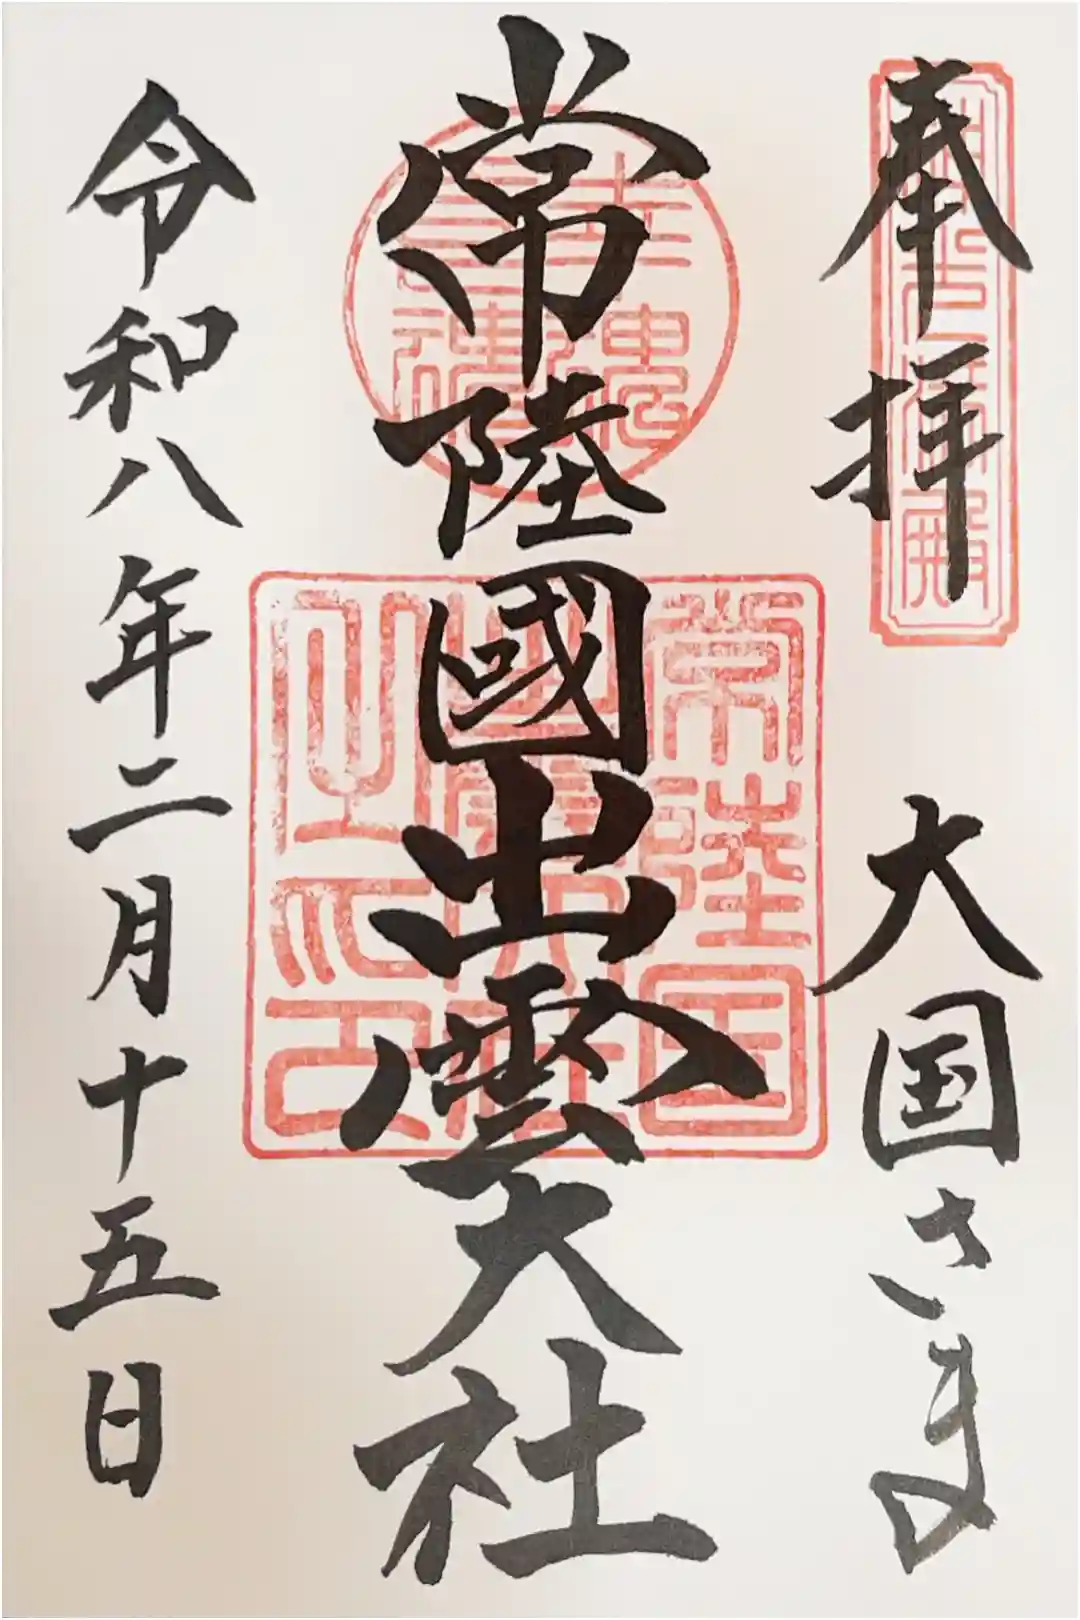 奉拝
大国さま
常陸國出雲大社
常陸国
之印
令和八年二月十五日